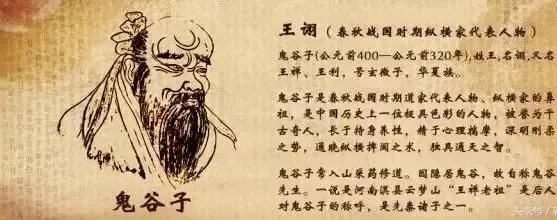 王诩（春秋战国时期纵横家代表人物）
鬼谷子(公元前400—公元前320年),姓王,名诩,又名
王祥、王利，号玄微子，华夏族。
鬼谷子是春秋战国时期道家代表人物、纵横家的鼻
祖，是中国历史上一位极具色彩的人物，被誉为千
古奇人，长于持身养性，精于心理揣摩，深明刚柔
之势，通晓纵横捭阖之术，独具通天之智。
鬼谷子常入山采药修道。因隐居鬼谷，故自称鬼谷
先生。一说是河南淇县云梦山“王祥老祖”是后人
对鬼谷子的称呼，是先秦诸子之一。
鬼谷子